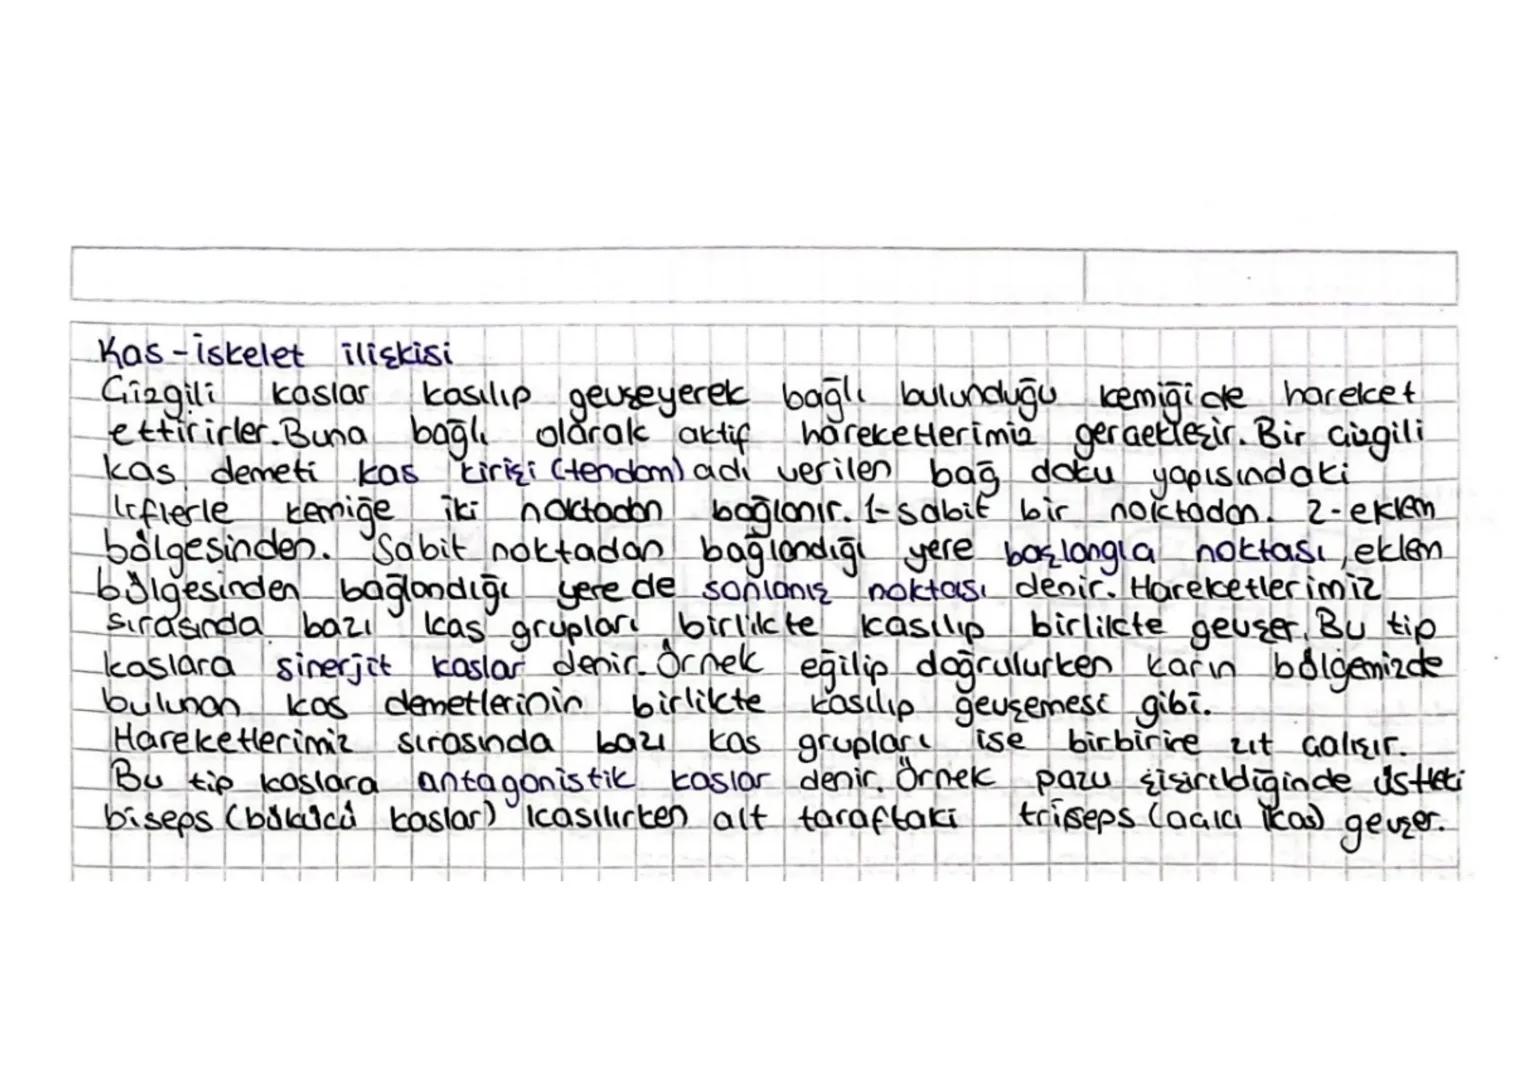 Kas-iskelet ilişkisi
Çizgili kaslar kasılıp gevşeyerek bağlı bulunduğu kemiği de hareket
ettirirler. Buna bağlı olarak aktif hareketlerimiz gerçekleşir. Bir çizgili
kas demeti kas kirişi (tendom) adı verilen bağ doku yapısındaki
liflerle kemiğe iki noktadan bağlanır. 1-sabit bir noktadan. 2-eklem
bölgesinden. Sabit noktadan bağlandığı yere başlangıa noktası, eklem
bölgesinden bağlandığı yere de sonlanış noktası denir. Hareketlerimiz
sırasında bazı kas grupları birlikte kasılıp birlikte gevşer. Bu tip
kaslara sinerjit kaslar denir. Örnek eğilip doğrulurken karın bölgemizde
bulunan kas demetlerinin birlikte kasılıp gevşemesi gibi.
Hareketlerimiz sırasında bazı kas grupları ise birbirire zıt çalışır.
Bu tip kaslara antagonistik kaslar denir. Örnek pazu şişirildiğinde üstteki
biseps (bükücü kaslar) kasılırken alt taraftaki triseps (açıcı kas) gevşer.